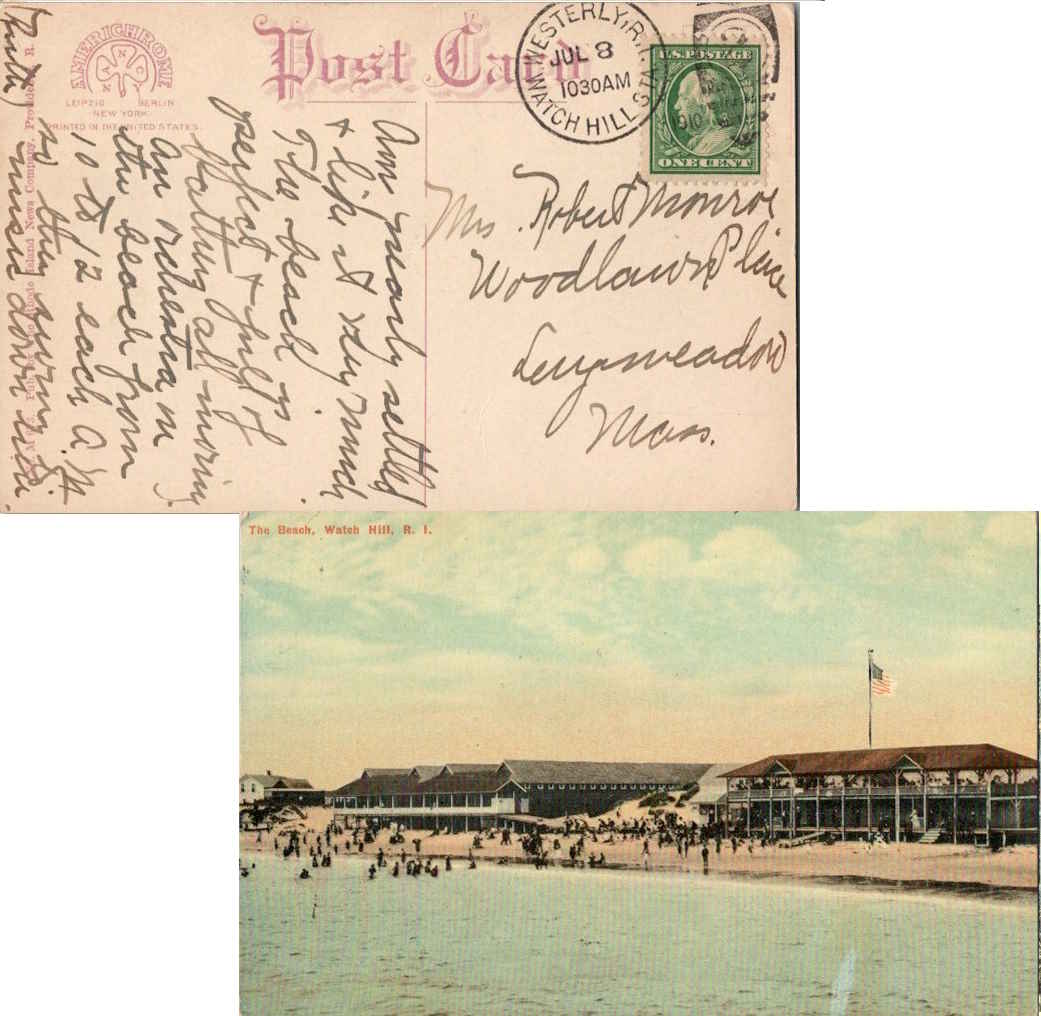 AMERICHROME
N
C
N
Y
LEIPZIG BERLIN
NEW YORK
PRINTED IN THE UNITED STATES.
Post Card
WESTERLY, R.I.
JUL 8
1030AM
WATCH HILL STA.
1910
U.S. POSTAGE
ONE CENT
Mrs. Robert Monroe
Woodlawn Place
Longmeadow
Mass.
Am nearly settled
& like it very much
The beach is
perfect & full of
bathers all morning
an orchestra on
the beach from
10 to 12 each A.M.
so they swim &
music down side.
Pub. by The Rhode Island News Company, Providence, R. I.
The Beach, Watch Hill, R. I.